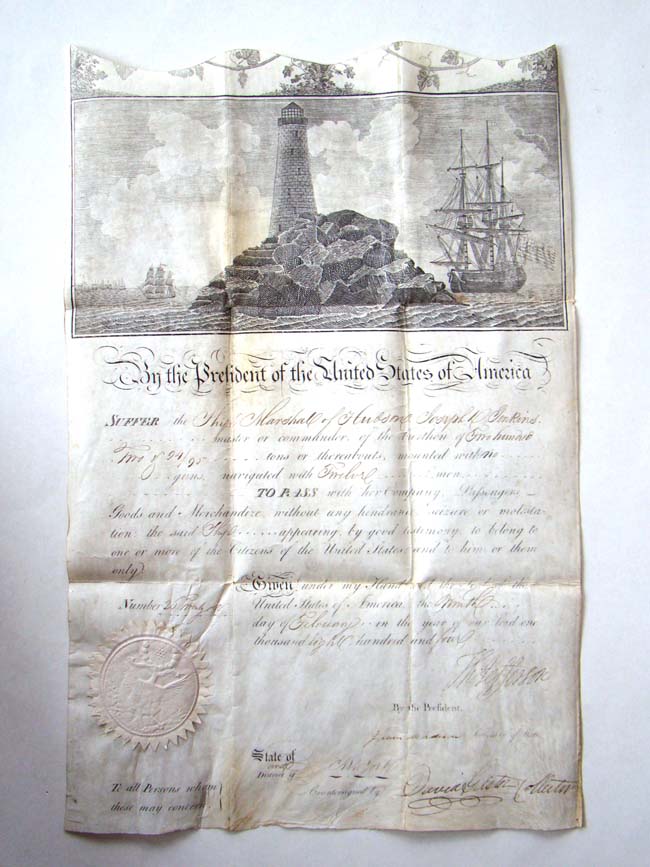 By the President of the United States of America
SUFFER the Ship Marshall of Hudson Joseph Jenkins
master or commander, of the burthen of Two hundred
Two & 24/95 tons or thereabouts, mounted with no
guns, navigated with Twelve men
TO PASS with her Company, Passengers
Goods and Merchandize, without any hindrance, seizure or molestation: the said Ship appearing, by good testimony, to belong to
one or more of the Citizens of the United States; and to him or them
only.
Given under my Hand and the Seal of the
United States of America, the Ninth
day of February in the year of our Lord one
thousand eight hundred and four
Number
Th Jefferson
By the President.
James Madison
State of
District of
Countersigned by
David Collector
To all Persons whom
these may concern.